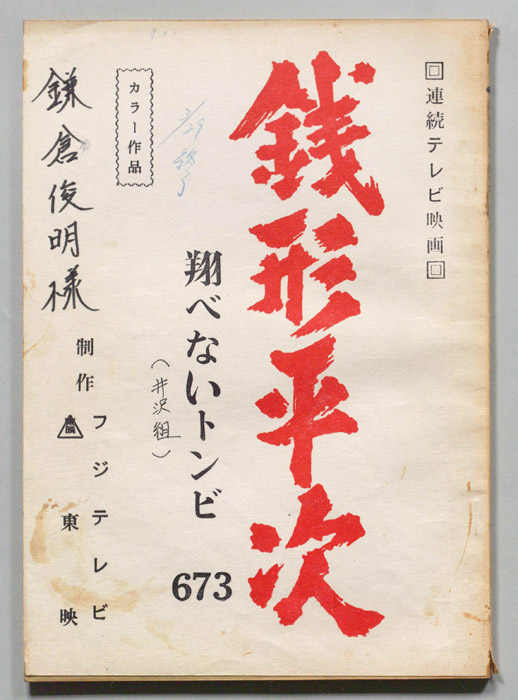 連続テレビ映画
銭形平次
翔べないトンビ
（井沢組）
673
カラー作品
3/29 終了
鎌倉俊明様
制作
フジテレビ
東映